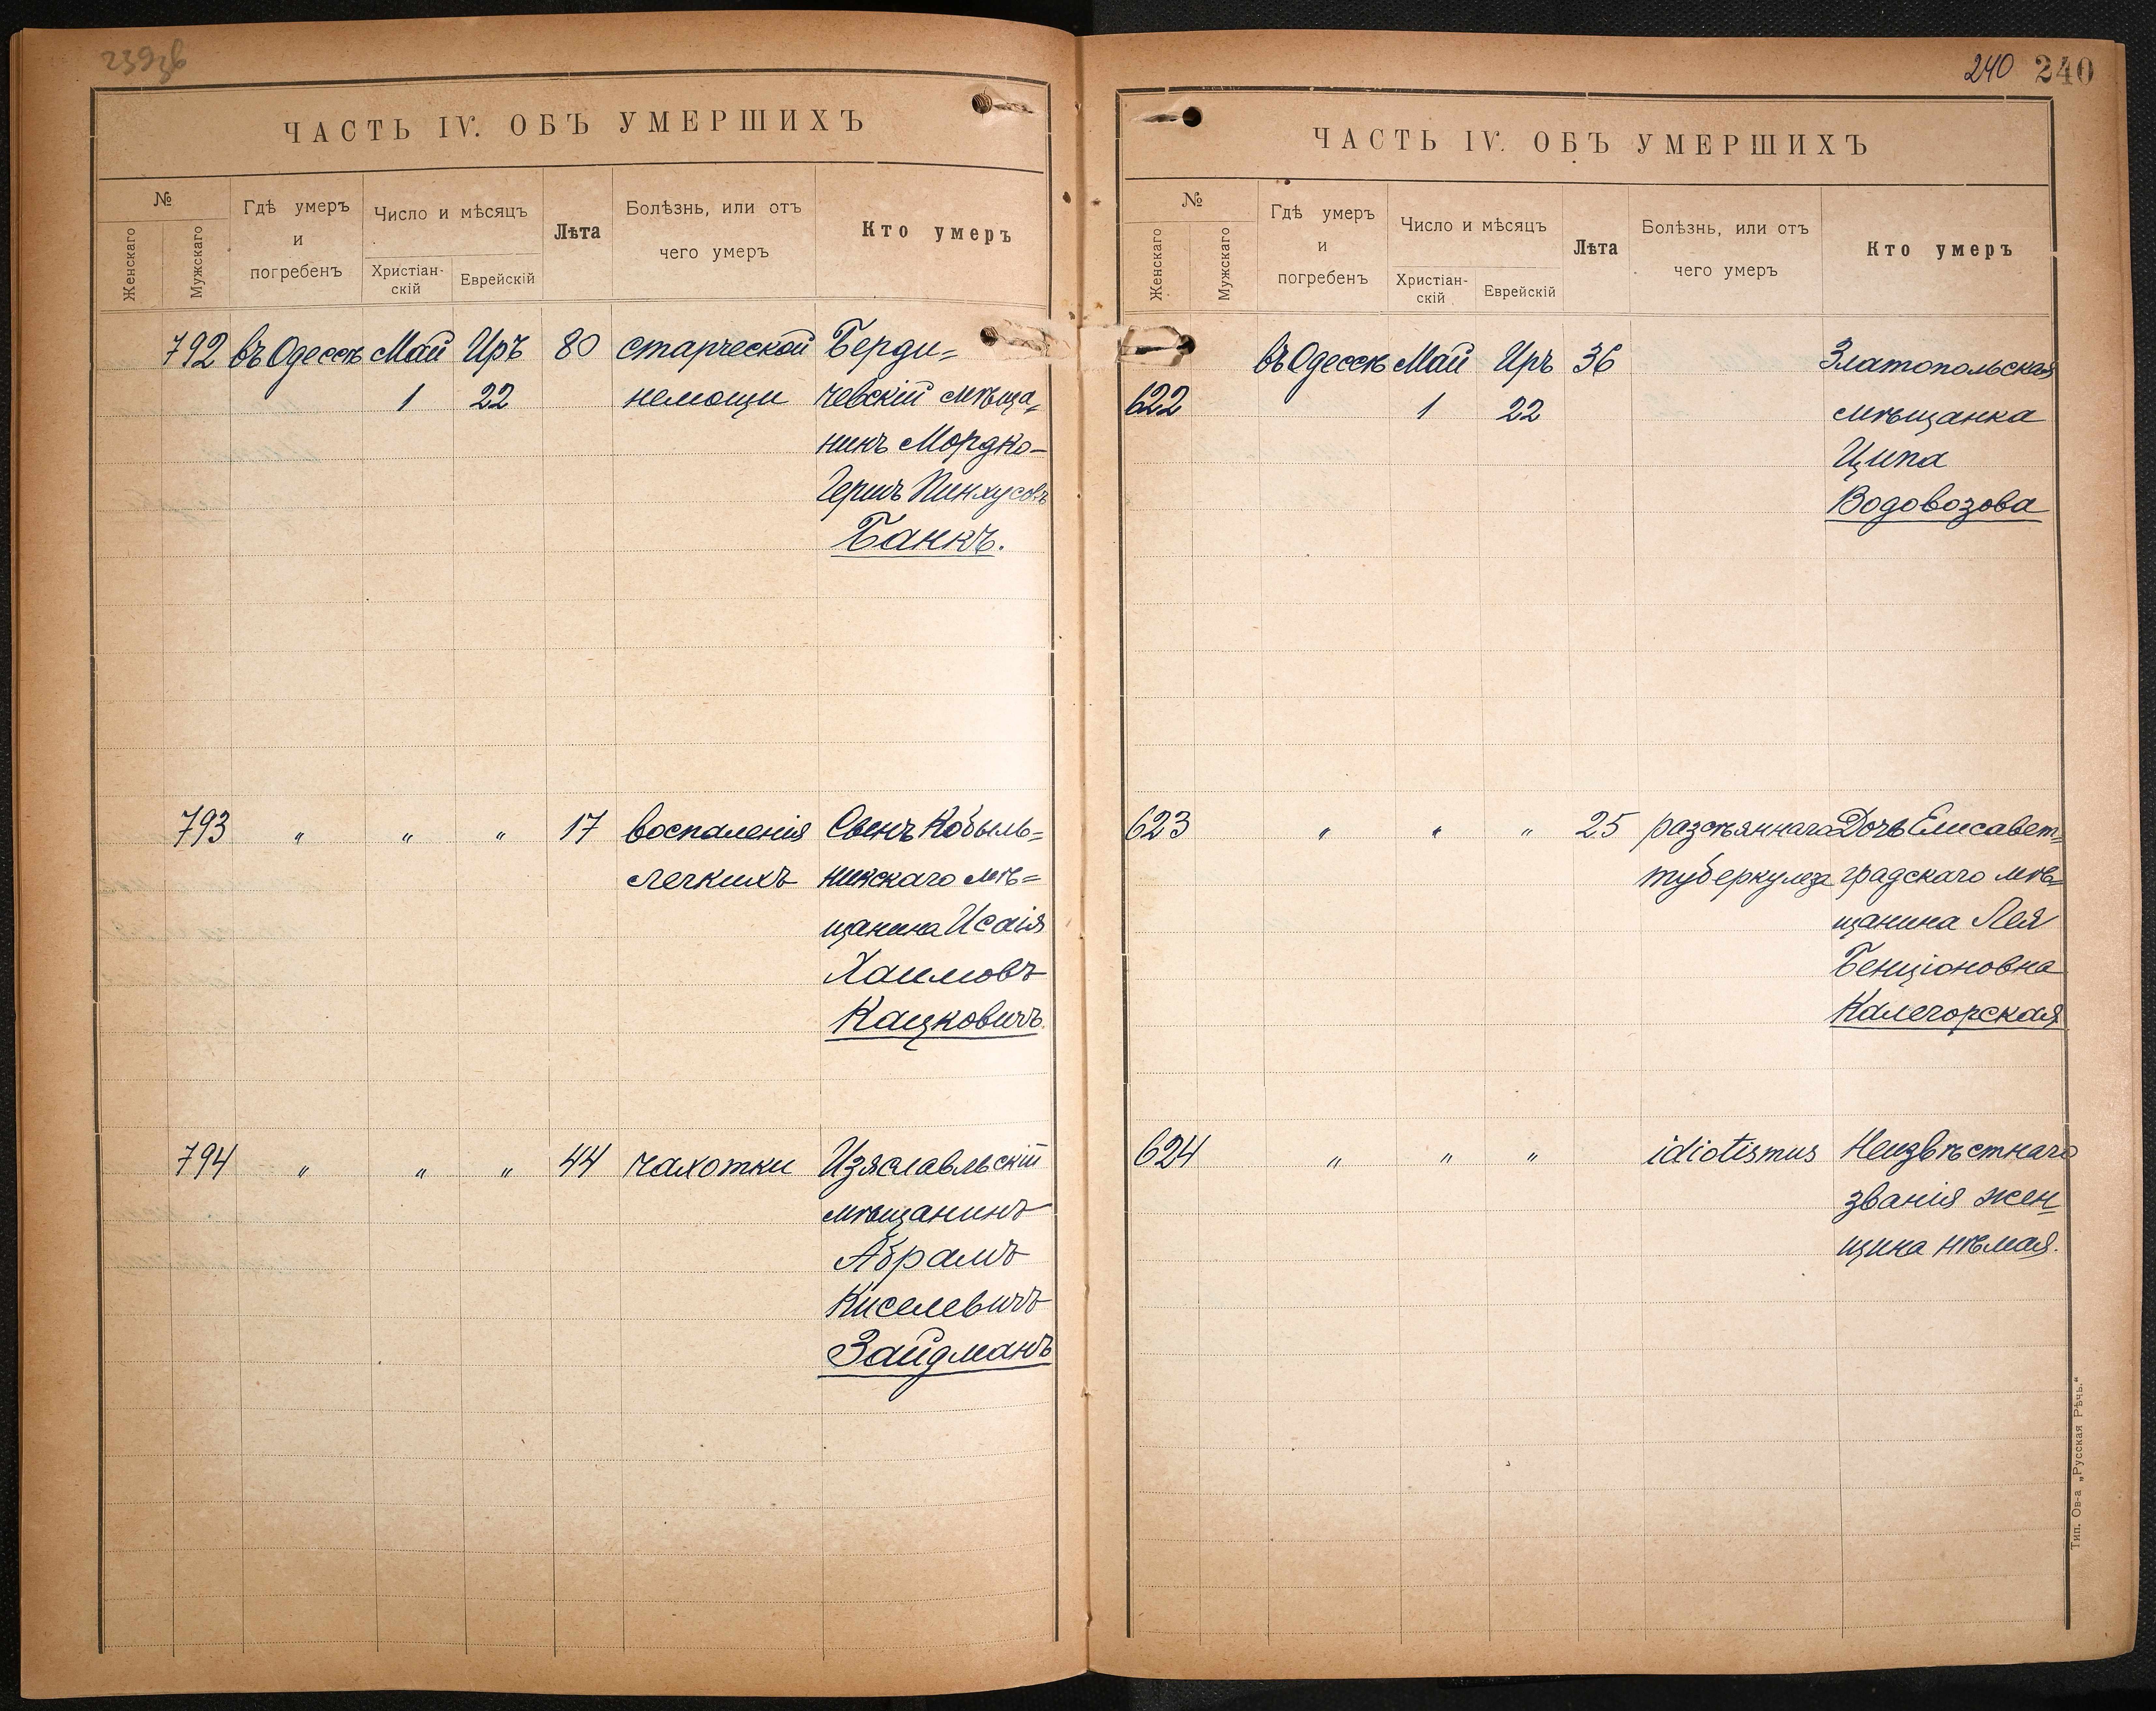 240 240
ЧАСТЬ IV. ОБЪ УМЕРШИХЪ
№
Женскаго
Мужскаго
Гдѣ умеръ
и
погребенъ
Число и мѣсяцъ
Христіан-
скій
Еврейскій
Лѣта
Болѣзнь, или отъ
чего умеръ
Кто умеръ
792 въ Одессѣ Май Иръ 80 старческой Берди=
1 22 немощи чевскій мѣща=
нинъ Мордко-
Гершъ Пинхусовъ
Банкъ.
793 " " " 17 воспаленія Сынъ Кобыль=
легкихъ нинскаго мѣ=
щанина Исаія
Хаимовъ
Кацковичъ.
794 " " " 44 чахотки Изяславльскій
мѣщанинъ
Абрамъ
Киселевичъ
Зайдманъ
ЧАСТЬ IV. ОБЪ УМЕРШИХЪ
№
Женскаго
Мужскаго
Гдѣ умеръ
и
погребенъ
Число и мѣсяцъ
Христіан-
скій
Еврейскій
Лѣта
Болѣзнь, или отъ
чего умеръ
Кто умеръ
въ Одессѣ Май Иръ 36 Златопольская
622 1 22 мѣщанка
Ципа
Водовозова
623 " " " 25 разсѣяннаго Дочь Елисавет=
туберкулеза градскаго мѣ=
щанина Лея
Бенціоновна
Калегорская
624 " " " idiotismus Неизвѣстнаго
званія жен=
щина нѣмая.
Тип. Ов-а „Русская Рѣчь."